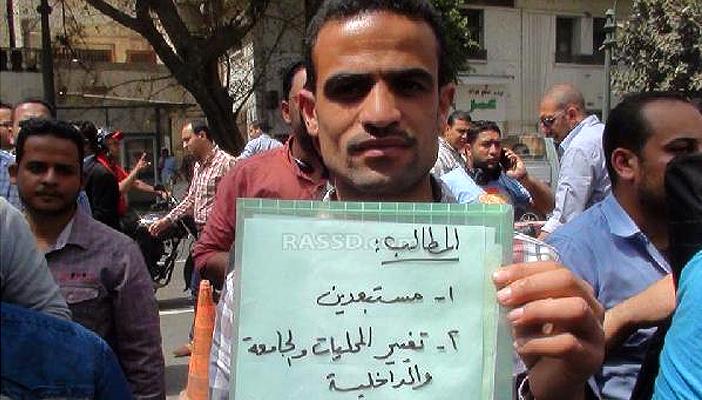 RASSD
المطالب:
١- مستبعدين
٢- تغيير المحليات والجامعة
والداخلية